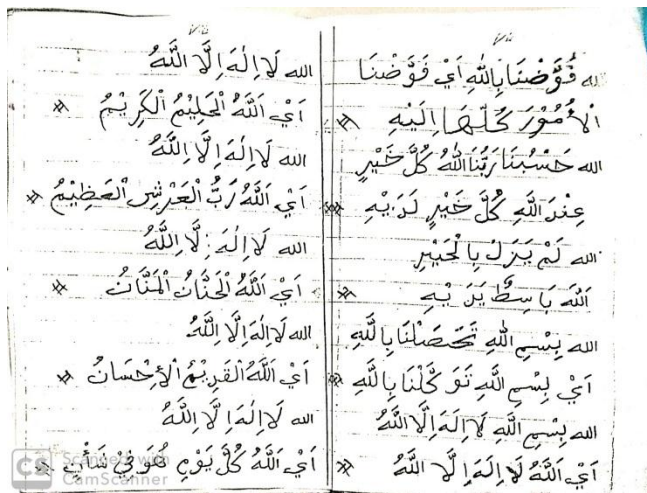 الله فَوَّضْنَا بِاللهِ اَيْ فَوَّضْنَا
الْاُمُوْرَ كُلَّهَا اِلَيْهِ
الله حَسْبُنَا رَبُّنَا اللهُ كُلُّ خَيْرٍ
عِنْدَ اللهِ كُلُّ خَيْرٍ لَدَيْهِ
الله لَمْ يَزَلْ بِالْخَيْرِ
اَللهُ بَاسِطٌ يَدَيْهِ
الله بِسْمِ اللهِ تَحَصَّلْنَا بِاللهِ
اَيْ بِسْمِ اللهِ تَوَكَّلْنَا بِاللهِ
الله بِسْمِ اللهِ لَااِلَهَ اِلَّا اللهُ
اَيْ اَللهُ لَااِلَهَ اِلَّا اللهُ
الله لَااِلٰهَ اِلَّا اللهُ
اَيْ اَللهُ الْحَلِيْمُ الْكَرِيْمُ
الله لَااِلٰهَ اِلَّا اللهُ
اَيْ اَللهُ رَبُّ الْعَرْشِ الْعَظِيْمُ
الله لَااِلٰهَ اِلَّا اللهُ
اَيْ اَللهُ الْحَنَّانُ الْمَنَّانُ
الله لَااِلٰهَ اِلَّا اللهُ
اَيْ اَللهُ الْقَدِيْمُ الْاِحْسَانُ
الله لَااِلٰهَ اِلَّا اللهُ
اَيْ اَللهُ كُلَّ يَوْمٍ هُوَ فِيْ شَأْنٍ
CS Scanned with
CamScanner